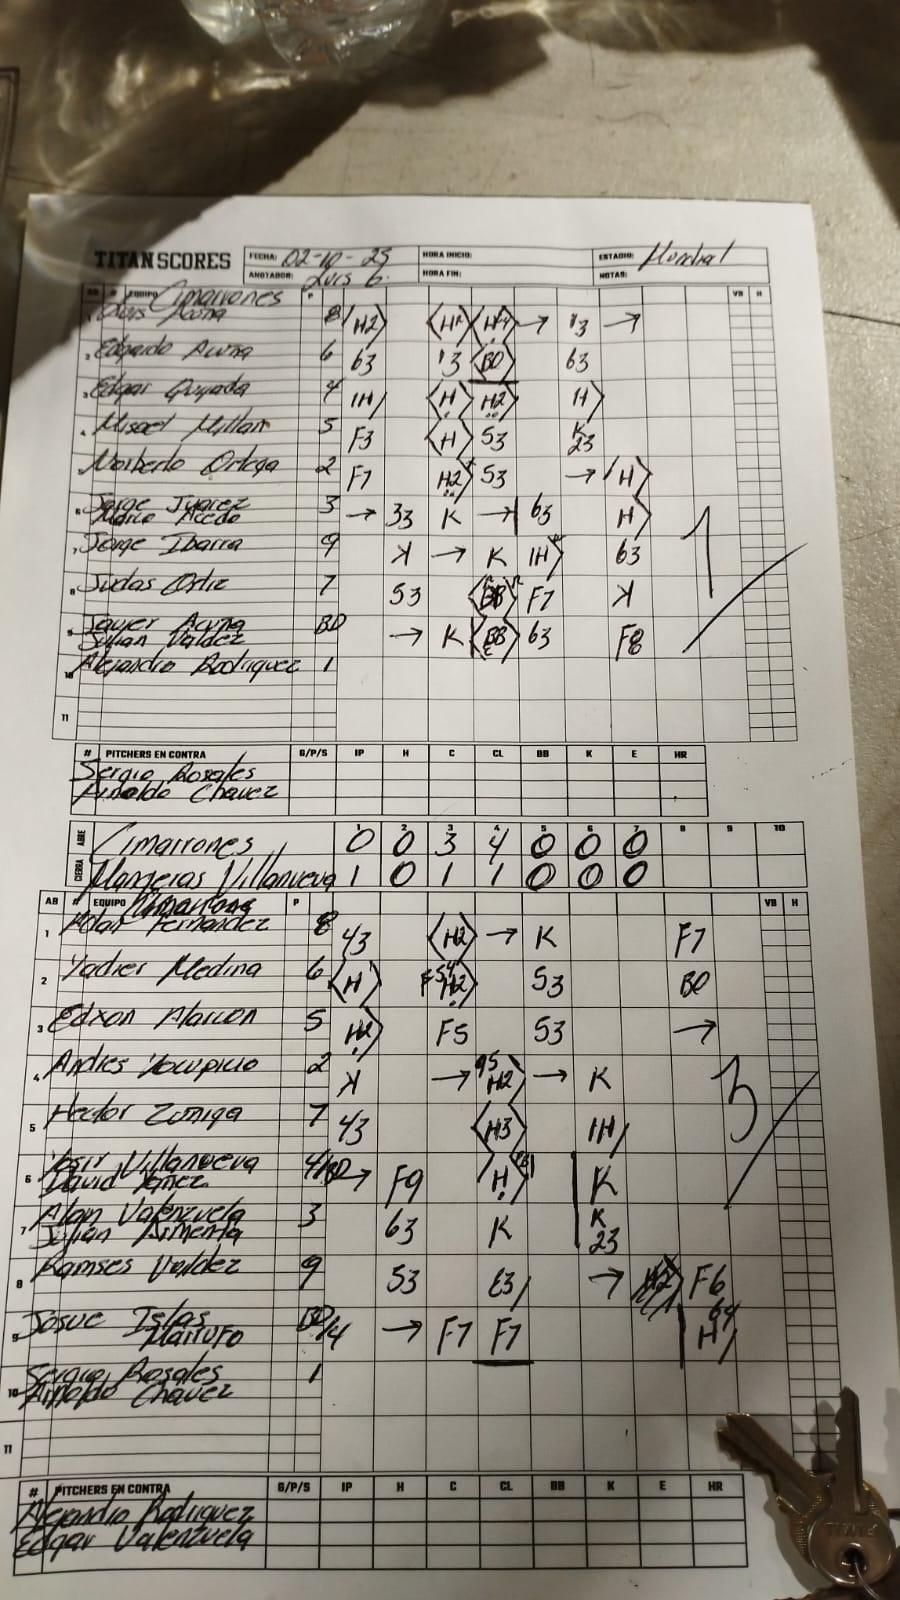 TITAN SCORES
FECHA: 02-10-25 HORA INICIO: ESTADIO: Mundial
ANOTADOR: Luis G. HORA FIN: NOTAS:
AB # EQUIPO Cimarrones P VB H
1 Acuna 8 H2 →  →
2 Edgardo Acuna 6 63 BD 63
3 Edgar Quijada 4 1H H H2 H
4 Misael Millan 5 F3 H 53 K 23
Norberto Ortega 2 F7 H2 53 → H
6 Jorge Juarez 3 → 33 K → 63 H
Acedo
7 Jorge Ibarra 9 K → K 1H 63
8 Judas Ortiz 7 53 BB F7 K
9 Javier Acuna BD → K BB 63 F8
Julian Valdez
10 Alejandro Rodriguez 1
11
1
# PITCHERS EN CONTRA G/P/S IP H C CL BB K E HR
Sergio Rosales
Arnoldo Chavez
1 2 3 4 5 6 7 8 9 10
ABRE Cimarrones 0 0 3 4 0 0 0
CIERRA Villanueva 1 0 1 1 0 0 0
AB # EQUIPO P VB H
1 Adan Fernandez 8 43 H2 → K F7
2 Yadier Medina 6 H H2 53 BD
3 Edxon Alarcon 5 H2 F5 53 →
4 Andres Yocupicio 2 K → H2 → K
5 Hector Zuniga 7 43 H3 1H
6 Yosir Villanueva 4/BD → F9 H K
David Yanez
7 Alan Valenzuela 3 63 K K 23
Julian Pimenta
8 Ramses Valdez 9 53 E3 → F6
9 Josue Islas BD/4 → F7 F7 64 H
Marrufo
10 Sergio Rosales 1
Arnoldo Chavez
11
3
# PITCHERS EN CONTRA G/P/S IP H C CL BB K E HR
Alejandro Rodriguez
Edgar Valenzuela